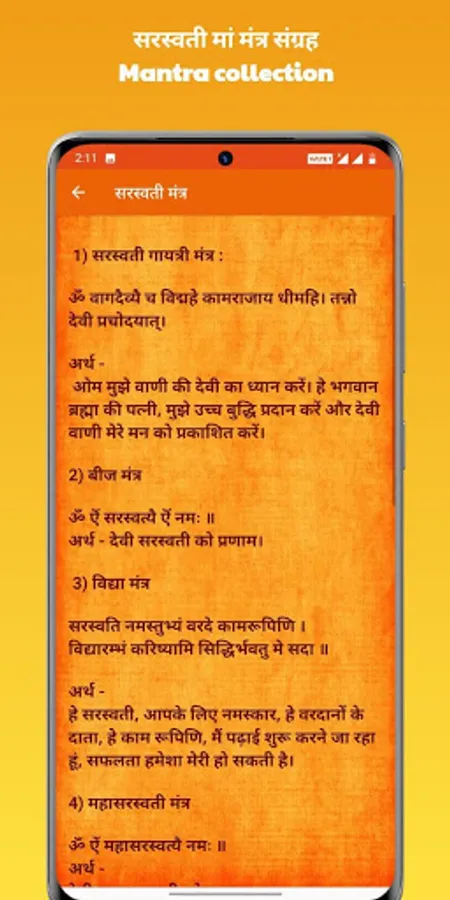 सरस्वती मां मंत्र संग्रह
Mantra collection
2:11
सरस्वती मंत्र
1) सरस्वती गायत्री मंत्र :
ॐ वागदैव्यै च विद्महे कामराजाय धीमहि। तन्नो
देवी प्रचोदयात्।
अर्थ -
ओम मुझे वाणी की देवी का ध्यान करें। हे भगवान
ब्रह्मा की पत्नी, मुझे उच्च बुद्धि प्रदान करें और देवी
वाणी मेरे मन को प्रकाशित करें।
2) बीज मंत्र
ॐ ऐं सरस्वत्यै ऐं नमः ॥
अर्थ - देवी सरस्वती को प्रणाम।
3) विद्या मंत्र
सरस्वति नमस्तुभ्यं वरदे कामरूपिणि ।
विद्यारम्भं करिष्यामि सिद्धिर्भवतु मे सदा ॥
अर्थ -
हे सरस्वती, आपके लिए नमस्कार, हे वरदानों के
दाता, हे काम रूपिणि, मैं पढ़ाई शुरू करने जा रहा
हूं, सफलता हमेशा मेरी हो सकती है।
4) महासरस्वती मंत्र
ॐ ऐं महासरस्वत्यै नमः ॥
अर्थ -